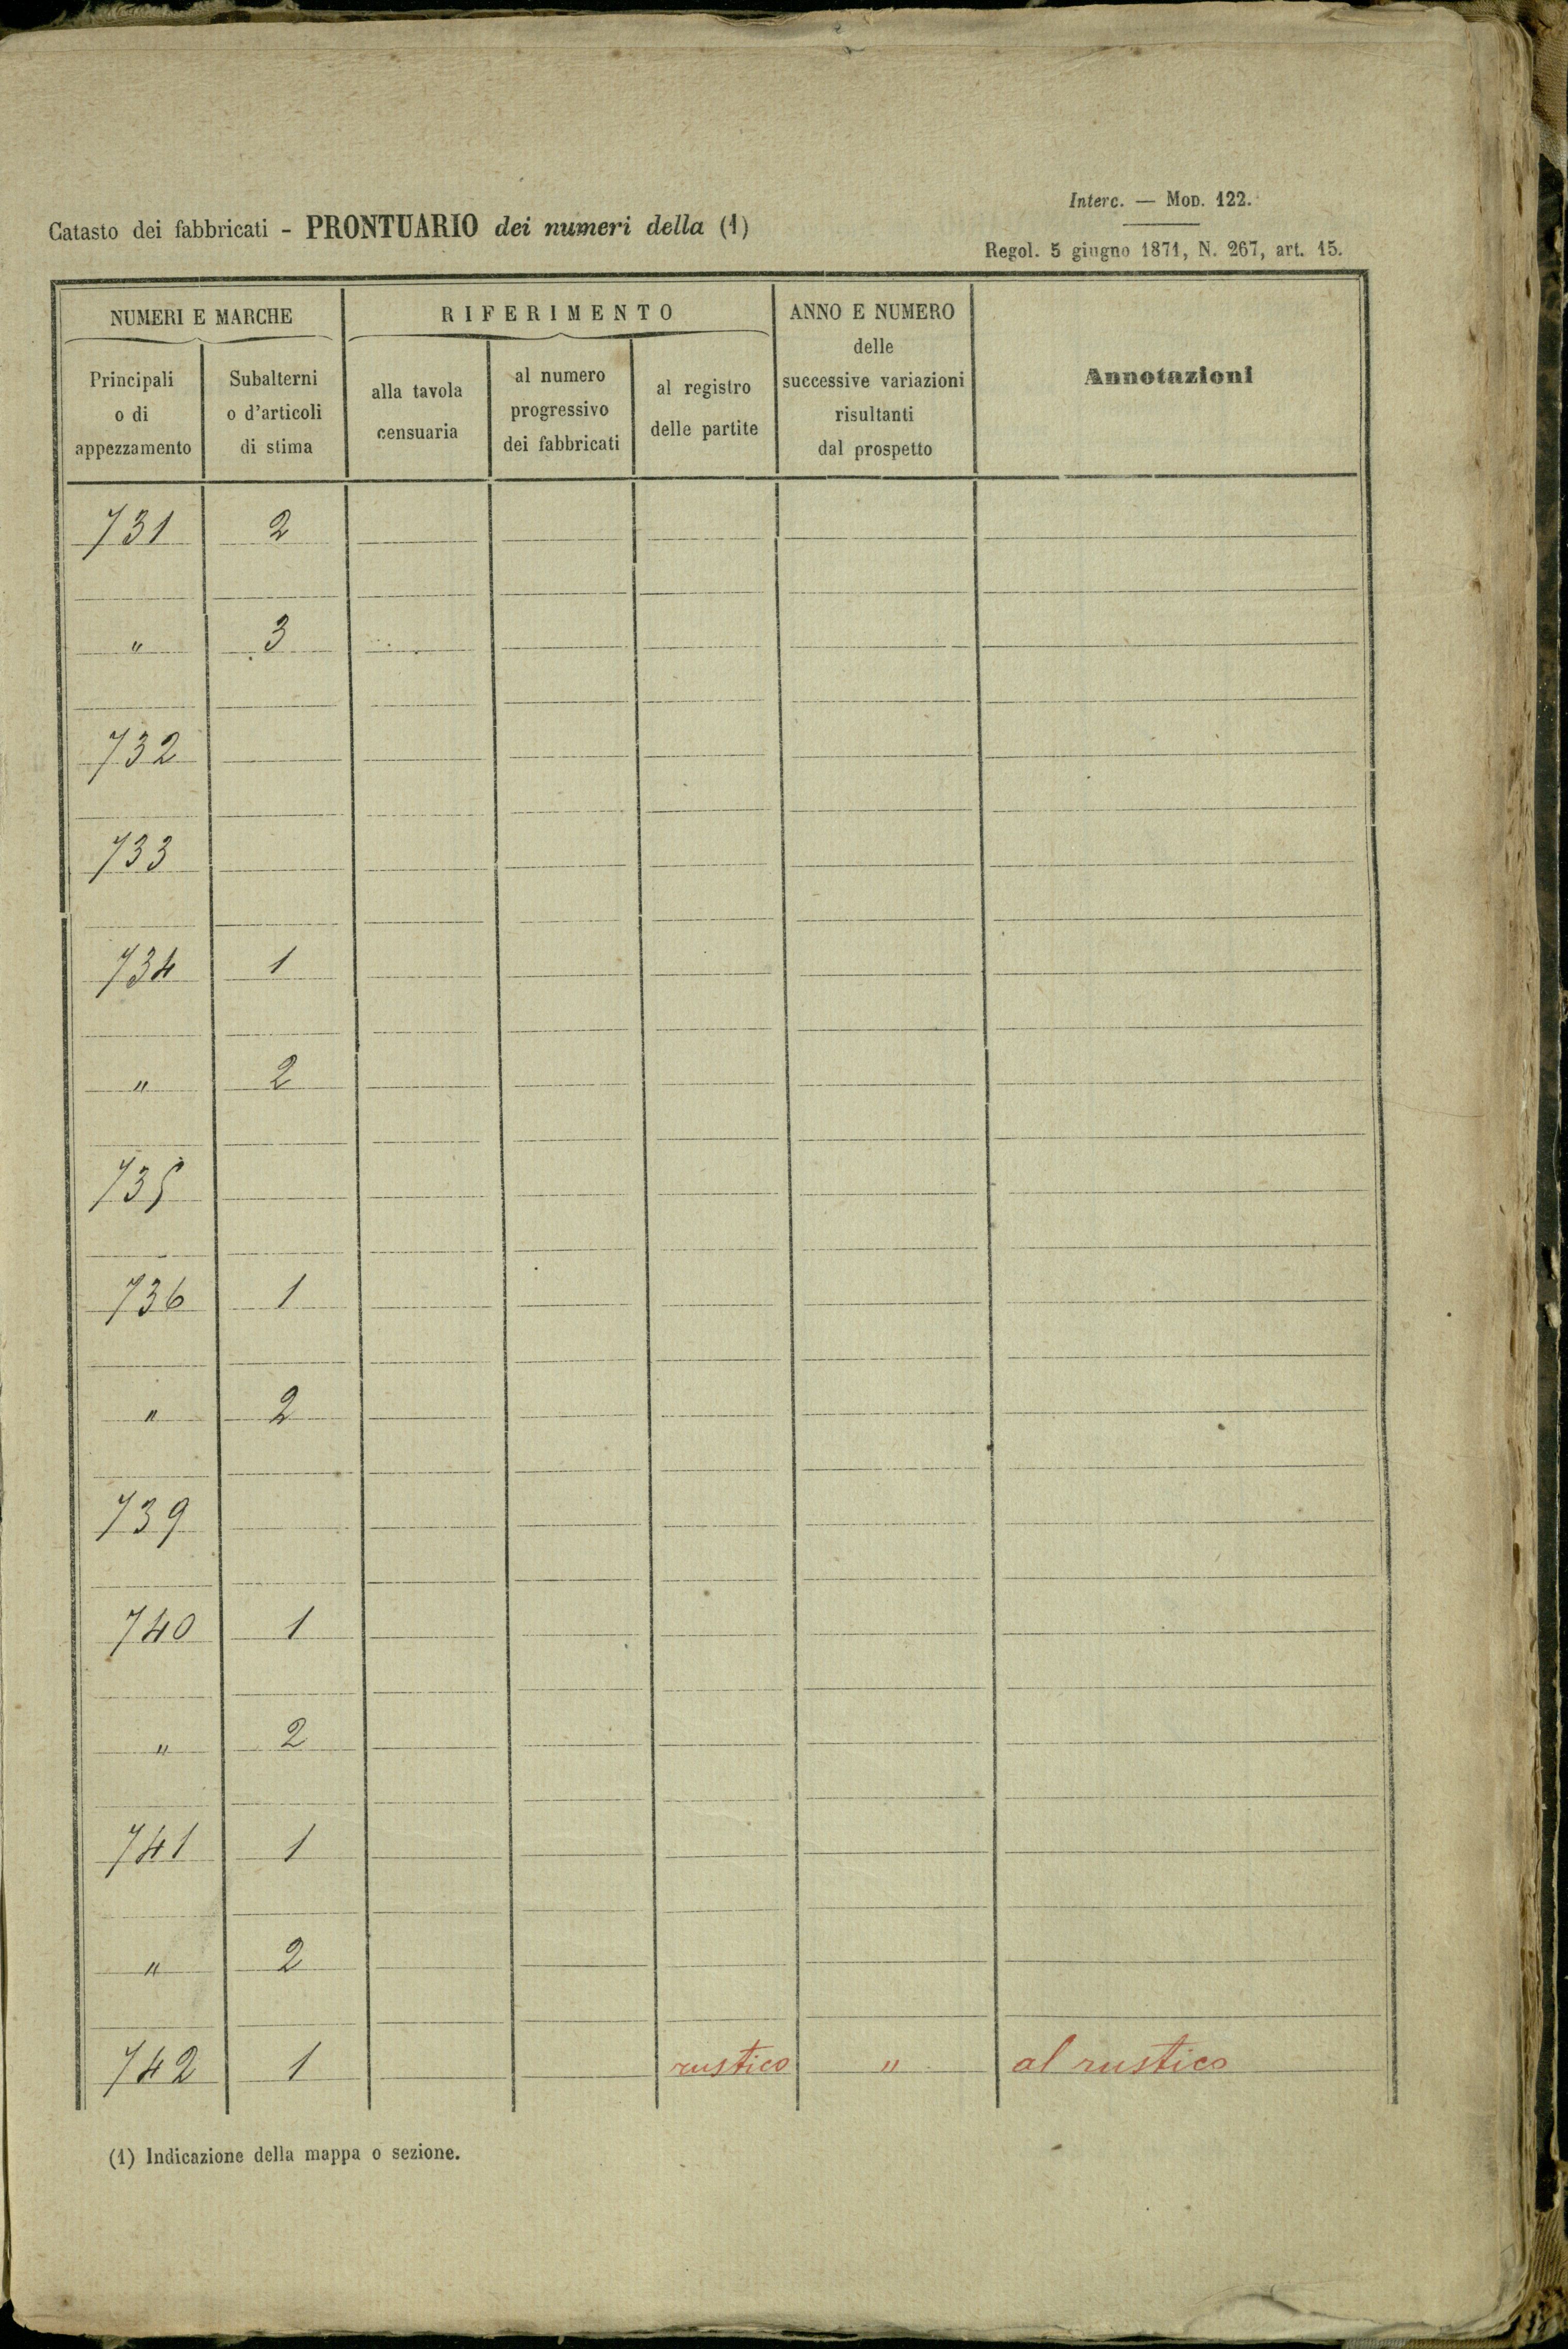 Interc. — Mod. 122.
Catasto dei fabbricati - PRONTUARIO dei numeri della (1)
Regol. 5 giugno 1871, N. 267, art. 15.
NUMERI E MARCHE
RIFERIMENTO
ANNO E NUMERO
delle
successive variazioni
risultanti
dal prospetto
Annotazioni
Principali
o di
appezzamento
Subalterni
o d'articoli
di stima
alla tavola
censuaria
al numero
progressivo
dei fabbricati
al registro
delle partite
731 2
" 3
732
733
734 1
" 2
735
736 1
" 2
739
740 1
" 2
741 1
" 2
742 1 rustico " al rustico
(1) Indicazione della mappa o sezione.